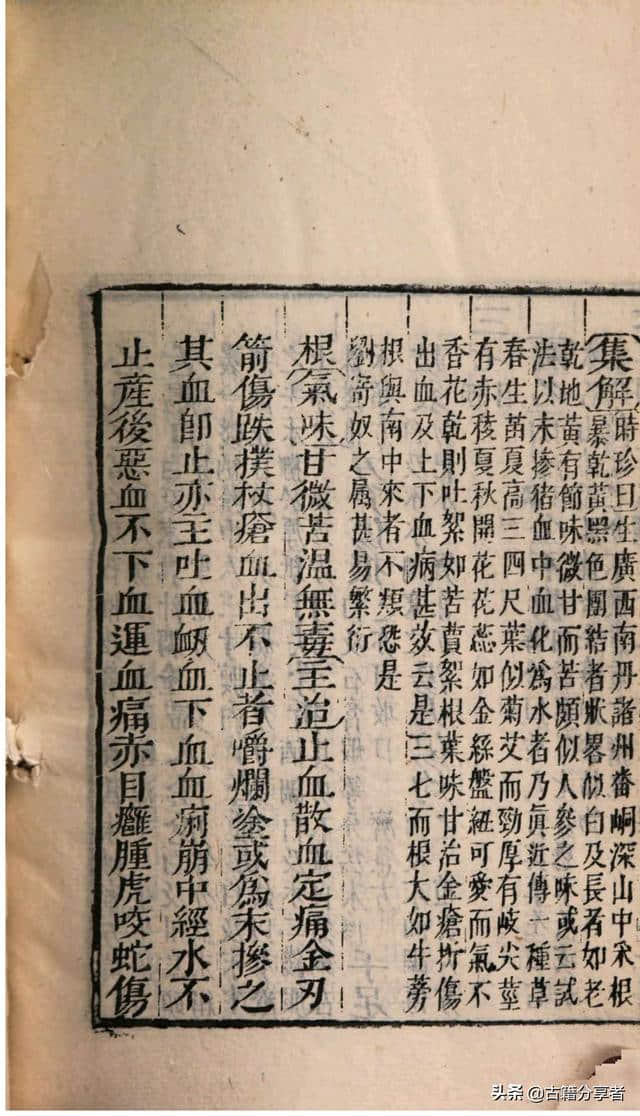 集解時珍曰生廣西南丹諸州番峒深山中采根
暴乾黃黑色團結者狀畧似白及長者如老
乾地黃有節味微甘而苦頗似人參之味或云試
法以末摻猪血中血化爲水者乃眞近傳一種草
春生苗夏高三四尺葉似菊艾而勁厚有歧尖莖
有赤稜夏秋開花花蕊如金絲盤紐可愛而氣不
香花乾則吐絮如苦蕒絮根葉味甘治金瘡折傷
出血及上下血病甚效云是三七而根大如牛蒡
根與南中來者不類恐是
劉寄奴之属甚易繁衍
根氣味甘微苦溫無毒主治止血散血定痛金刃
箭傷跌撲杖瘡血出不止者嚼爛塗或爲末摻之
其血卽止亦主吐血衂血下血血痢崩中經水不
止產後惡血不下血運血痛赤目癰腫虎咬蛇傷
头条 @古籍分享者